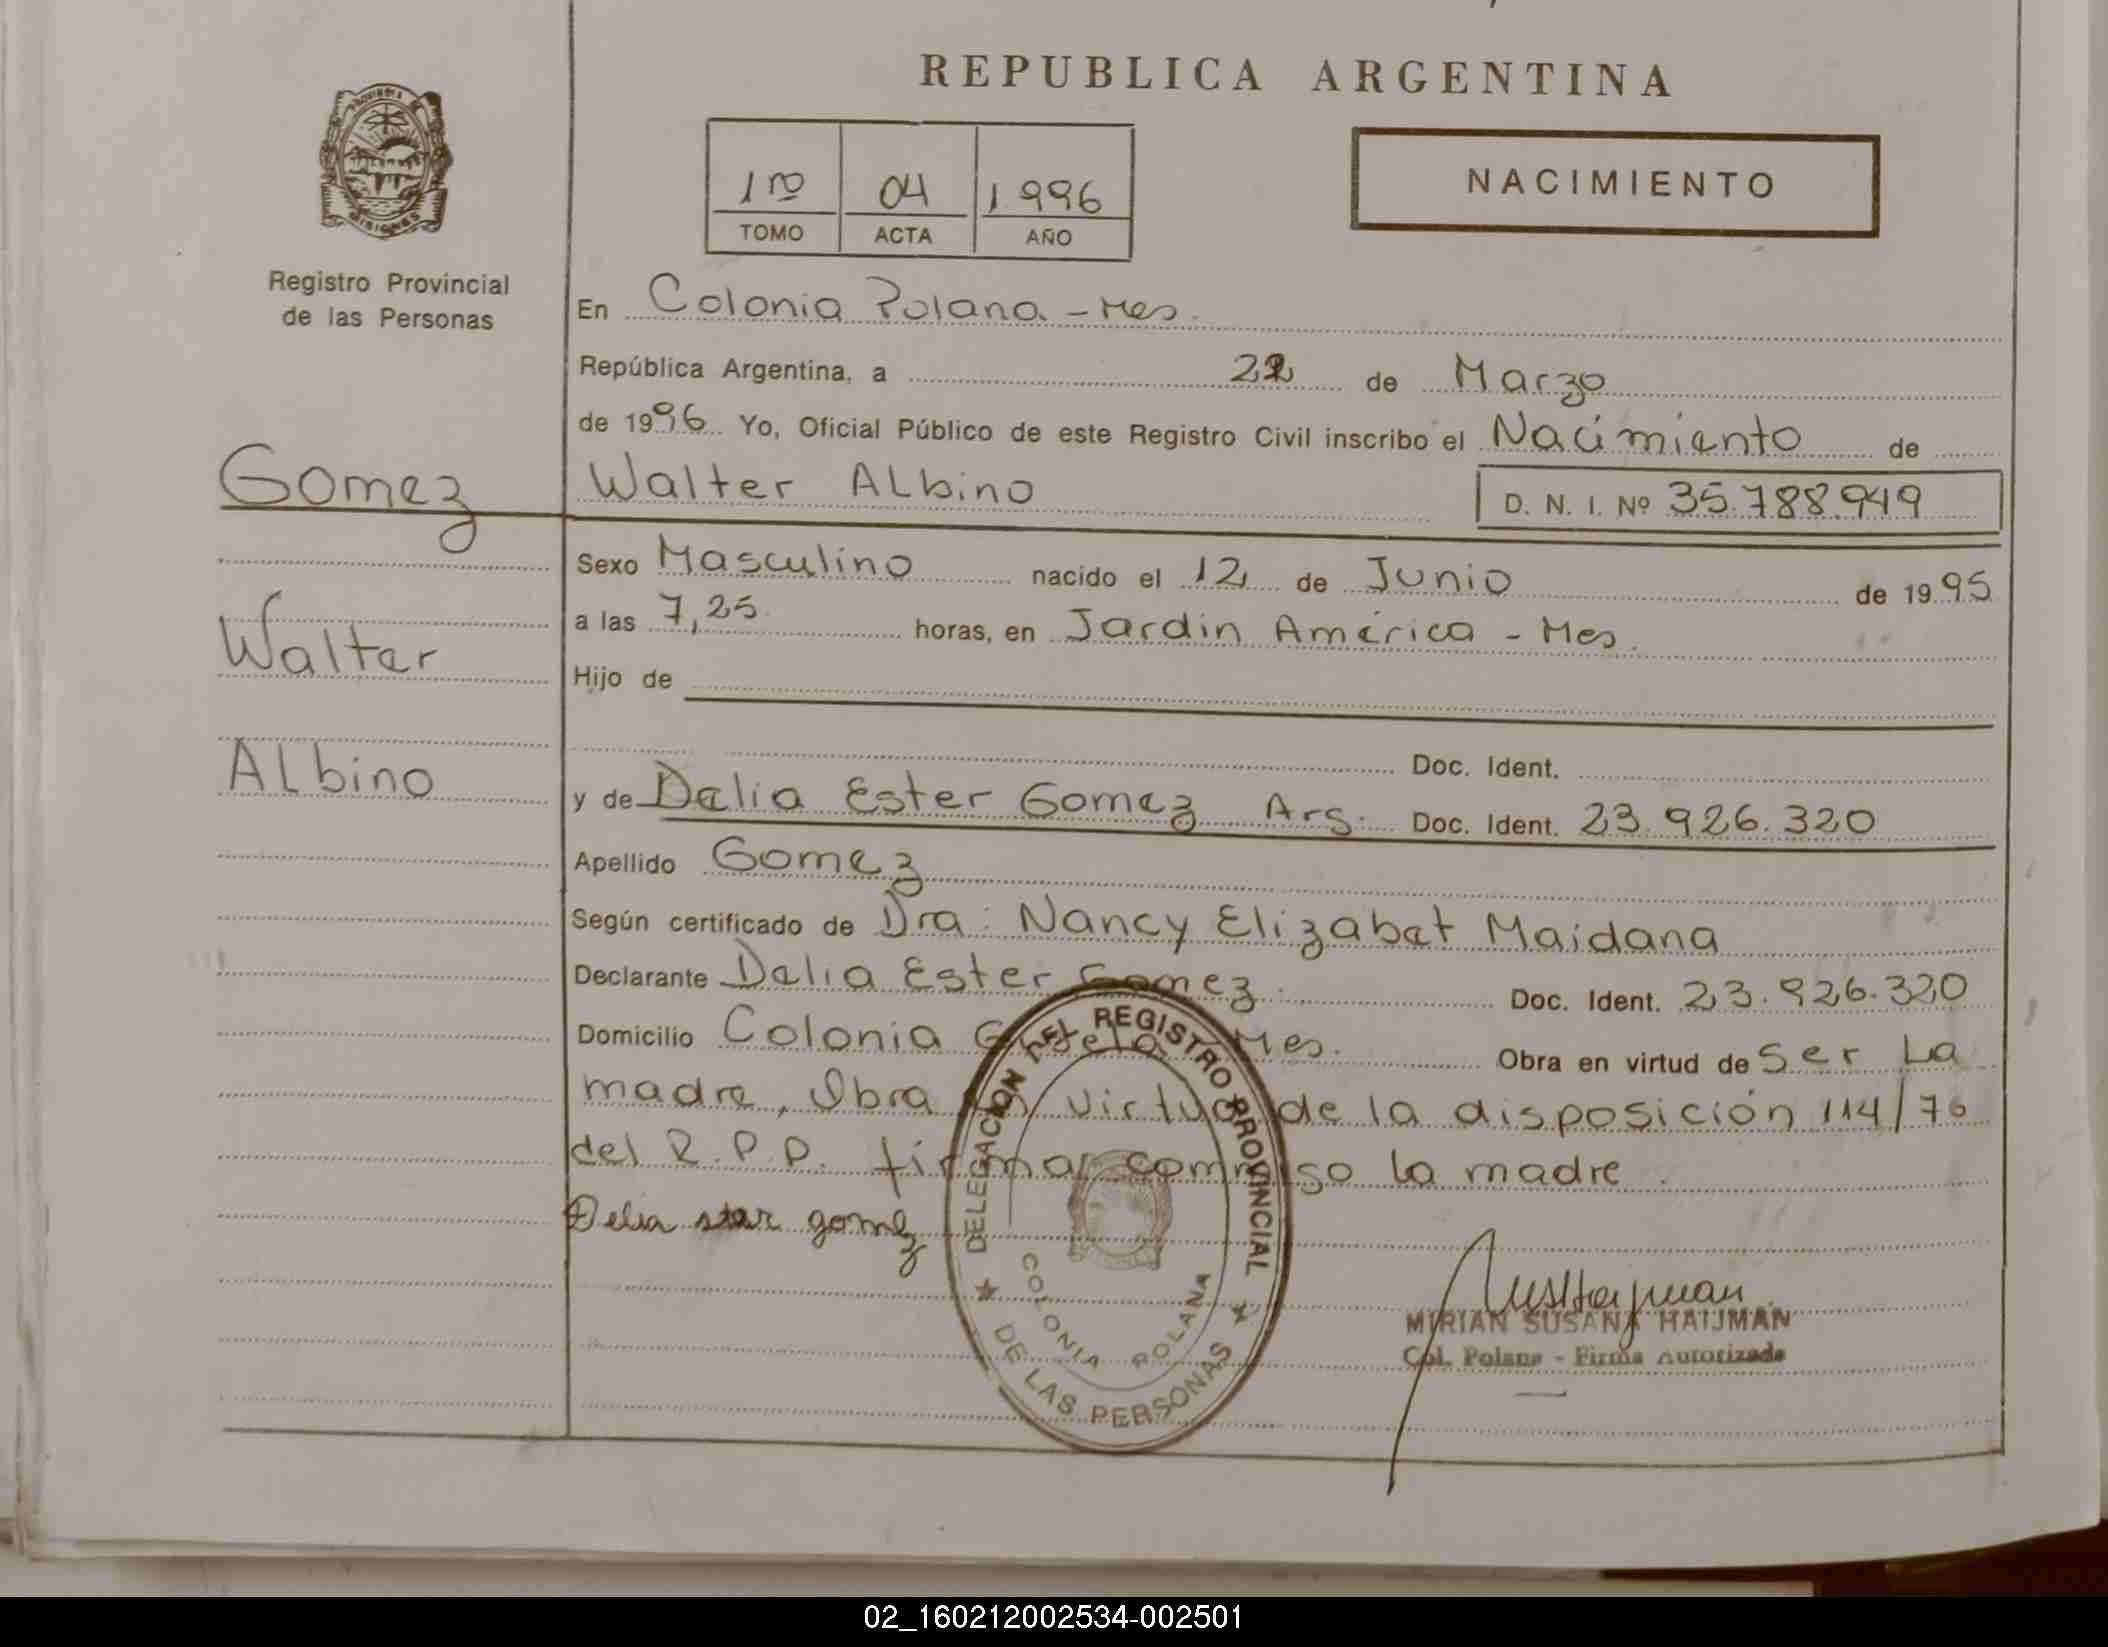 REPUBLICA ARGENTINA
1ro 04 1.996
TOMO ACTA AÑO
NACIMIENTO
MISIONES
Registro Provincial
de las Personas
En Colonia Polana - Mes.
República Argentina, a 22 de Marzo
de 1996 Yo, Oficial Público de este Registro Civil inscribo el Nacimiento de
Gomez Walter Albino D. N. I. Nº 35.788.949
Sexo Masculino nacido el 12 de Junio de 1995
a las 7,25 horas, en Jardin América - Mes.
Walter
Hijo de
Doc. Ident.
Albino
y de Delia Ester Gomez Arg. Doc. Ident. 23.926.320
Apellido Gomez
Según certificado de Dra: Nancy Elizabet Maidana
Declarante Delia Ester Gomez. Doc. Ident. 23.926.320
Domicilio Colonia Mes. Obra en virtud de Ser La
madre, Obra en virtud de la disposición 114/76
del R.P.P. firmar la madre.
Delia star gomez
DELEGACION DEL REGISTRO PROVINCIAL
DE LAS PERSONAS
COLONIA POLANA
MIRIAN SUSANA HAIJMAN
Col. Polana - Firma Autorizada
02_160212002534-002501